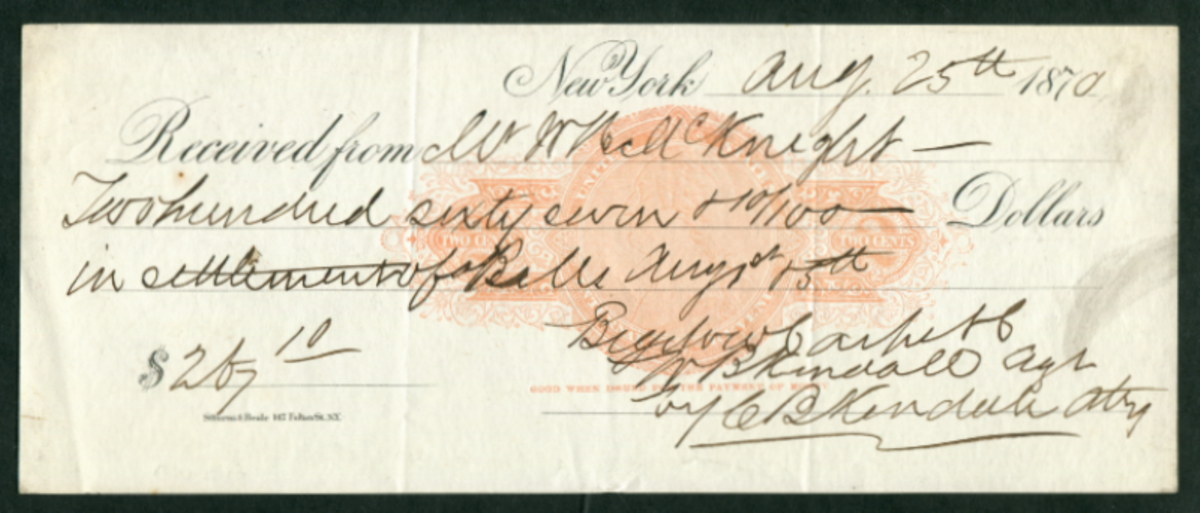 New York Aug. 25th 1870
Received from Mr W H McKnight —
Two hundred sixty seven & 10/100 — Dollars
in settlement of Bills Augst 5th
$267 10
Bigelow Carpet Co
W B Kendall Agt
by C B Kendall Atty
GOOD WHEN ISSUED FOR THE PAYMENT OF MONEY
TWO CENTS
TWO CENTS
UNITED
147 Fulton St. N.Y.